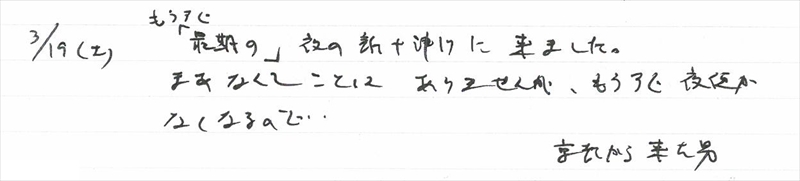 もうすぐ
3/19(土) 「最期の」夜の新十津川に来ました。
まあなんてことは ありませんが、もうすぐ夜便が
なくなるので…
京都から来た男